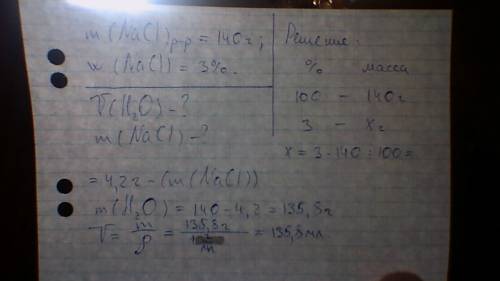 m(NaCl)р-р = 140г;
w(NaCl) = 3%.
V(H₂O) - ?
m(NaCl) - ?
Решение:
% масса
100 - 140г
3 - хг
x = 3·140:100 =
= 4,2г - (m(NaCl))
m(H₂O) = 140 - 4,2 = 135,8г
V = m/ρ = 135,8г / = 135,8мл